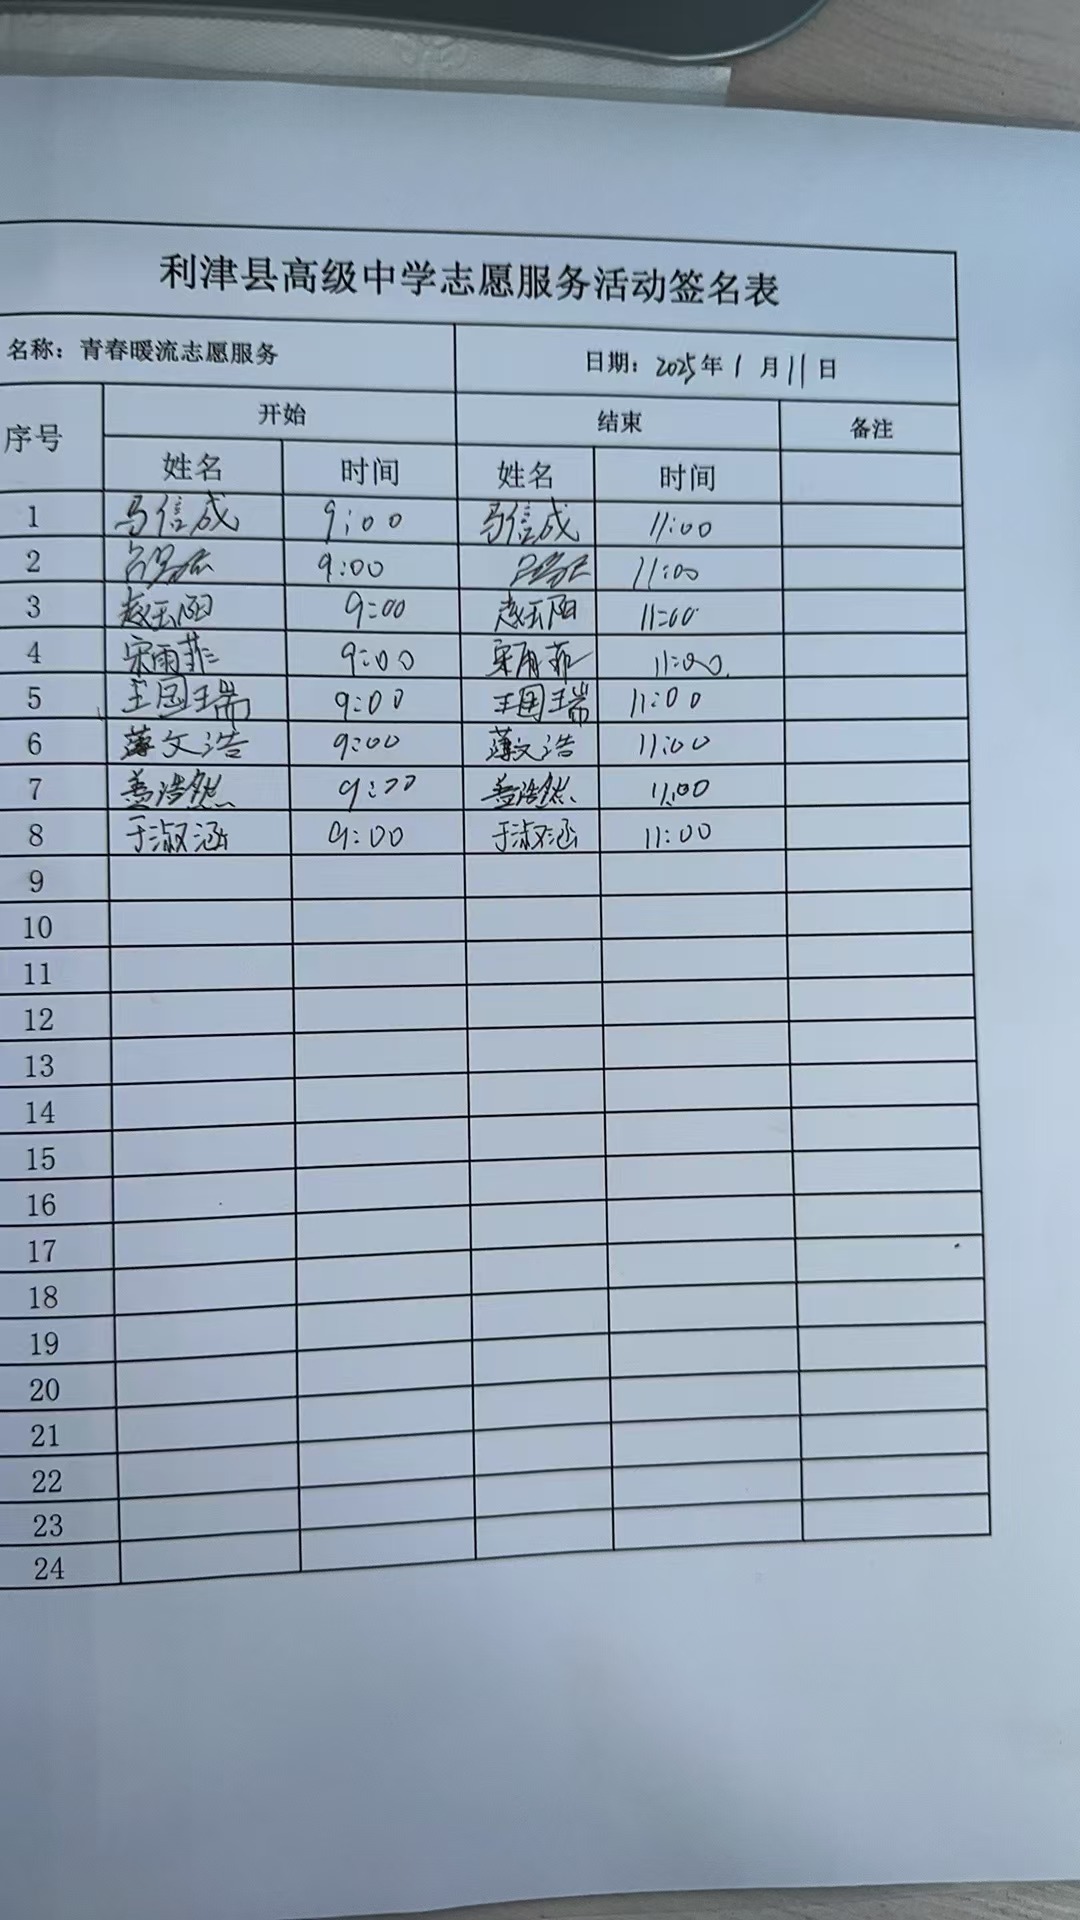 利津县高级中学志愿服务活动签名表
名称：青春暖流志愿服务 日期：2025年1月11日
序号 开始 结束 备注
姓名 时间 姓名 时间
1 马信成 9:00 马信成 11:00
2 9:00 11:00
3 赵云阳 9:00 赵云阳 11:00
4 宋雨菲 9:00 宋雨菲 11:00
5 王国瑞 9:00 王国瑞 11:00
6 薄文浩 9:00 薄文浩 11:00
7 盖浩然 9:00 盖浩然 11:00
8 于淑涵 9:00 于淑涵 11:00
9
10
11
12
13
14
15
16
17
18
19
20
21
22
23
24